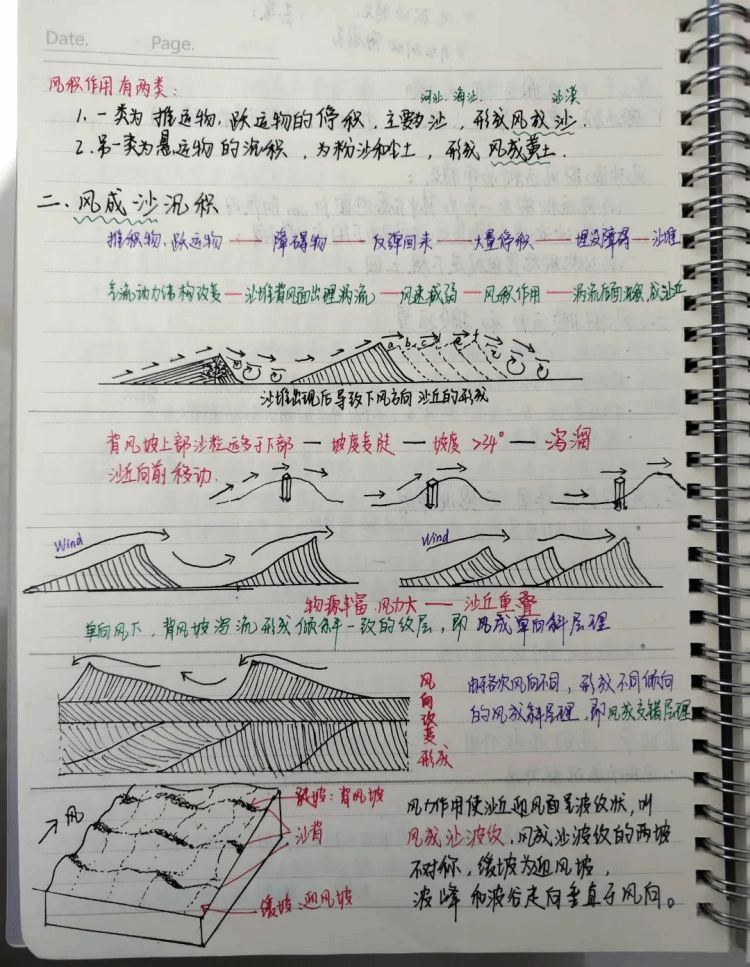 Date. Page.
风积作用有两类:
河沙.海沙. 沙漠
1. 一类为 推运物、跃运物的停积,主要为沙,形成风成沙.
2. 另一类为悬运物的沉积,为粉沙和尘土,形成风成黄土.
二、风成沙沉积
推积物、跃运物 — 障碍物 — 反弹回来 — 大量停积 — 埋没障碍 — 沙堆
气流动力结构改变 — 沙堆背风面出现涡流 — 风速减弱 — 风积作用 — 涡流后面沉积,成沙丘
a b c d e f
沙堆出现后导致下风方向沙丘的形成
背风坡上部沙粒远多于下部 — 坡度变陡 — 坡度 >34° — 泻溜
沙丘向前移动.
Wind Wind
物源丰富.风力大 — 沙丘重叠
单向风下,背风坡泻流形成倾斜一致的纹层,即风成单向斜层理
风向改变形成
由于各次风向不同,形成不同倾向
的风成斜层理,即风成交错层理
风
陡坡:背风坡
沙脊
缓坡:迎风坡
风力作用使沙丘迎风面呈波纹状,叫
风成沙波纹,风成沙波纹的两坡
不对称,缓坡为迎风坡,
波峰和波谷走向垂直于风向。